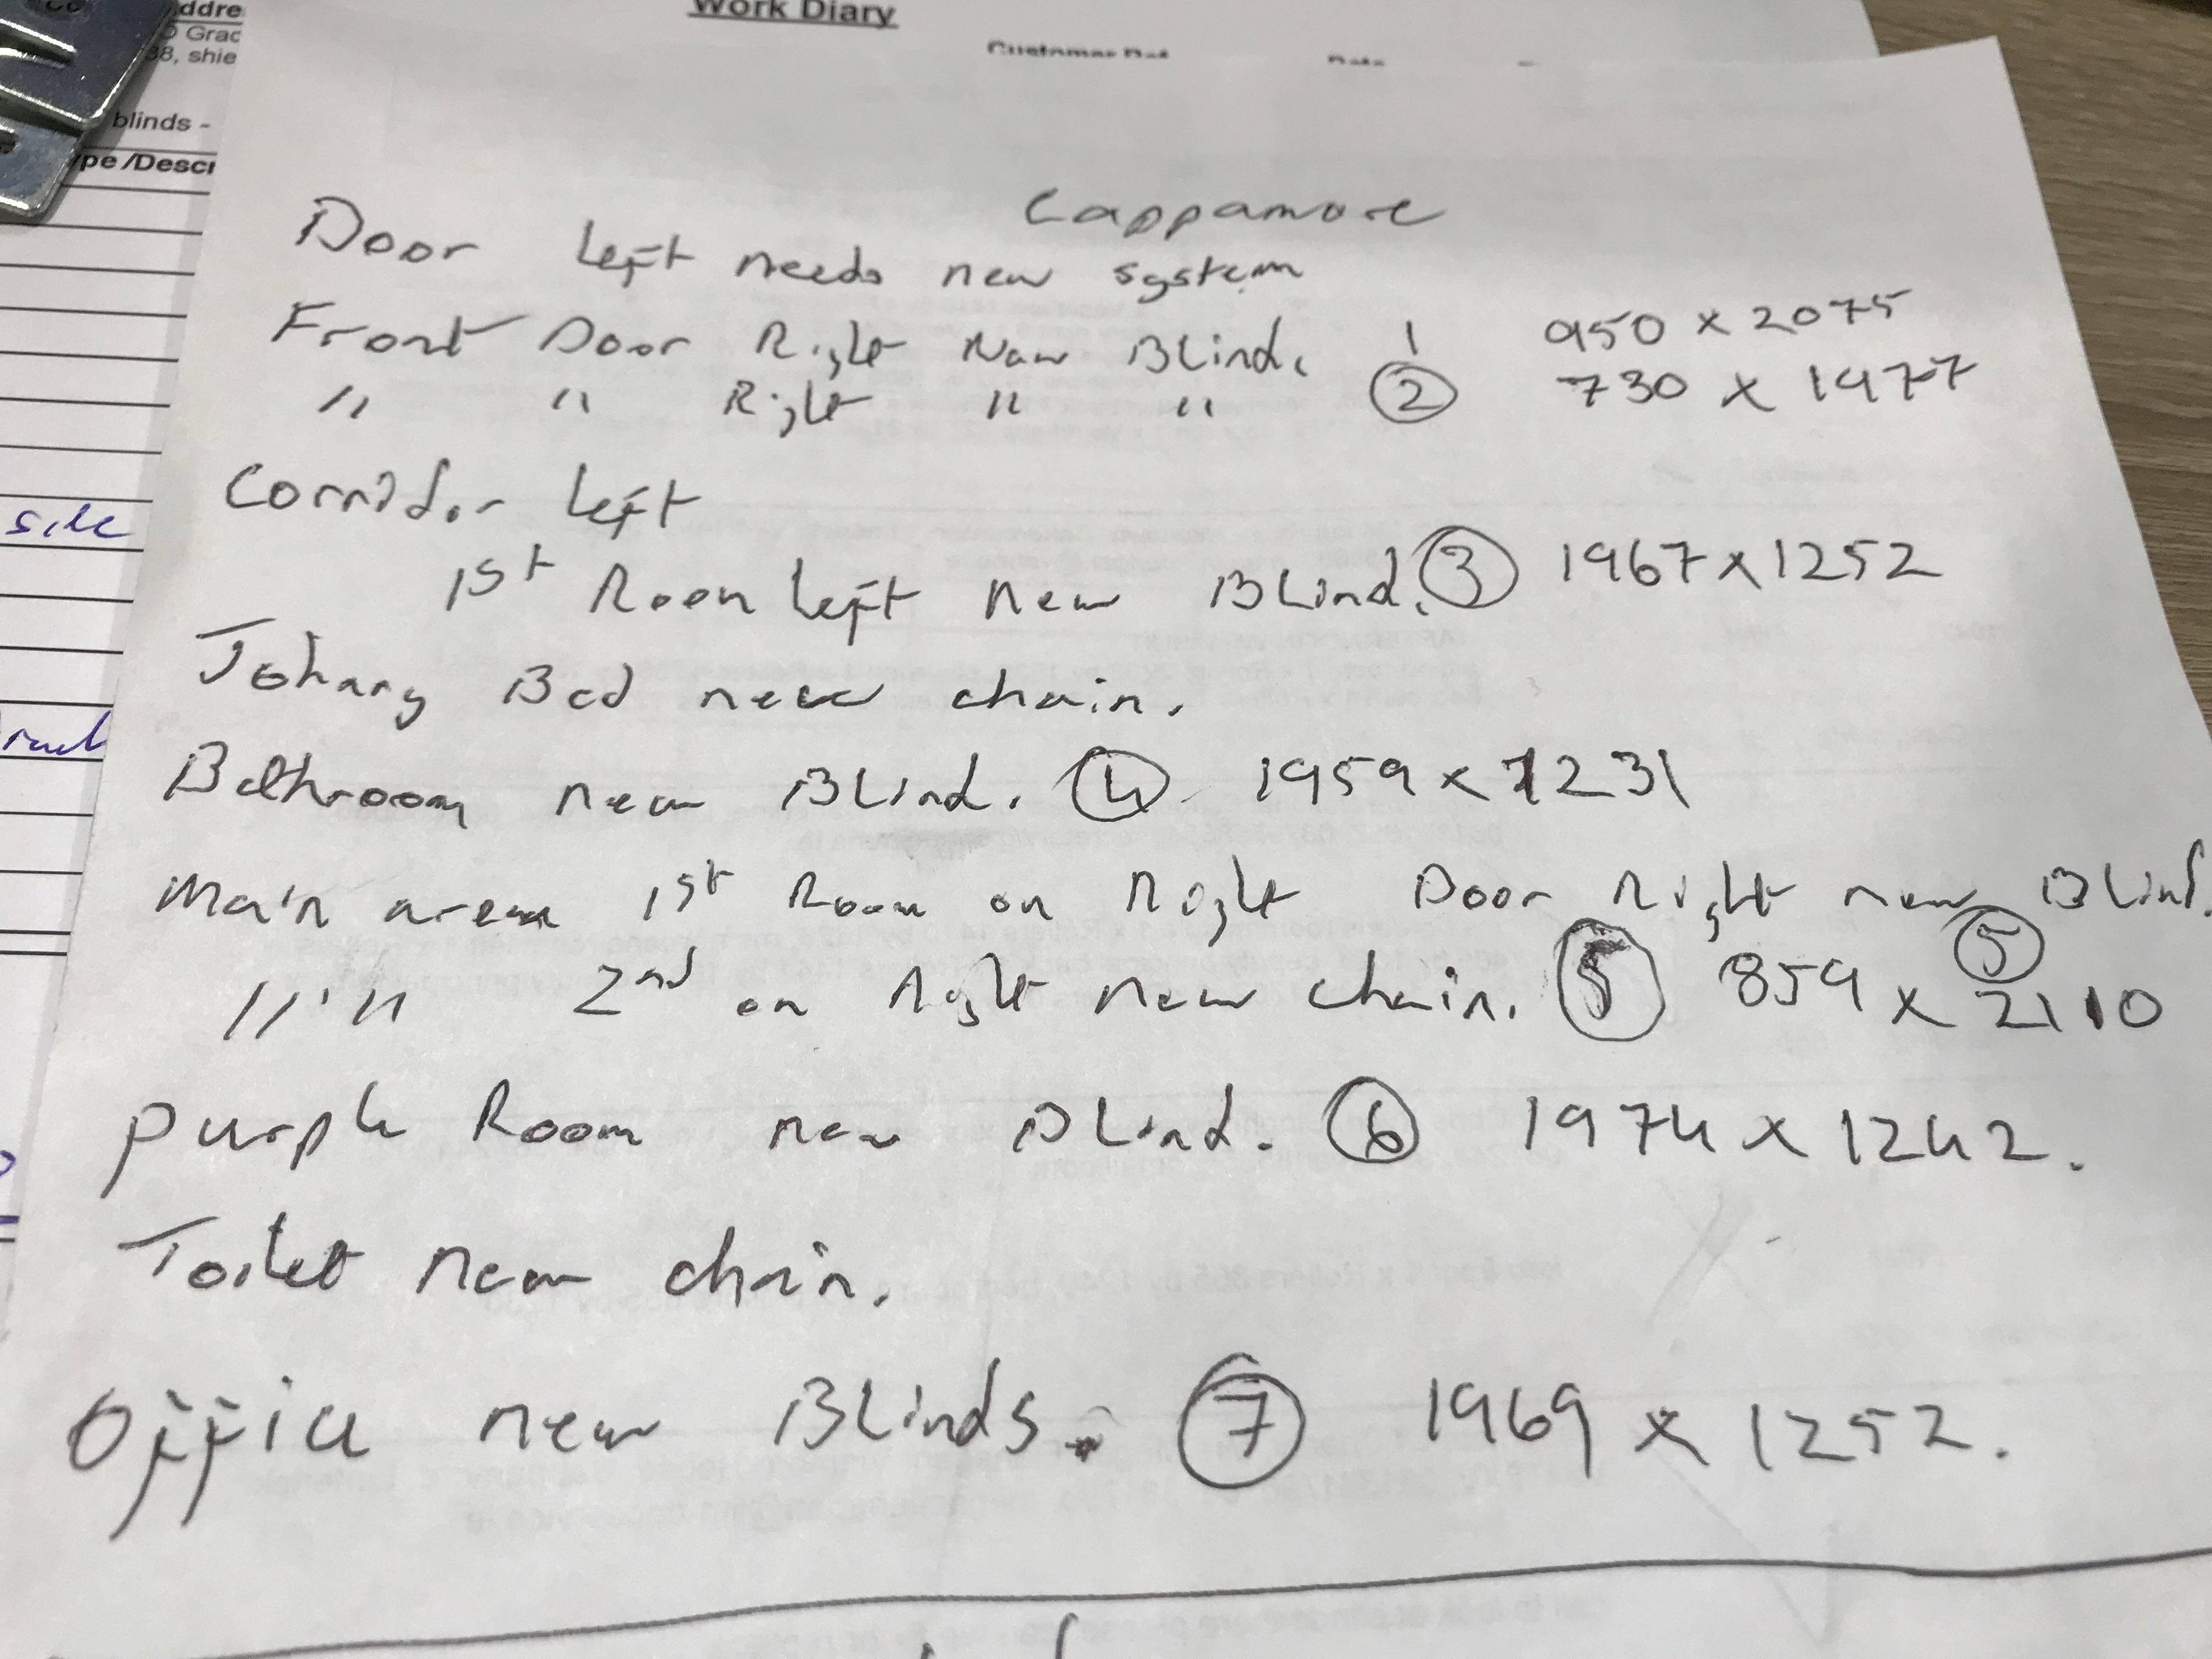 Work Diary
blinds -
side
Cappamore
Door Left needs new system
Front Door Right New Blind. 1 950 x 2075
" " Right " " 2 730 x 1977
Corridor Left
1st Room Left new Blind. 3 1967 x 1252
Johnny Bed new chain.
Bathroom new Blind. 4 1959 x 1231
Main area 1st Room on Right Door Right new Blind. 5
" " 2nd on Right new chain. 5 859 x 2110
Purple Room new Blind. 6 1974 x 1242.
Toilet new chain.
Office new Blinds. 7 1969 x 1252.